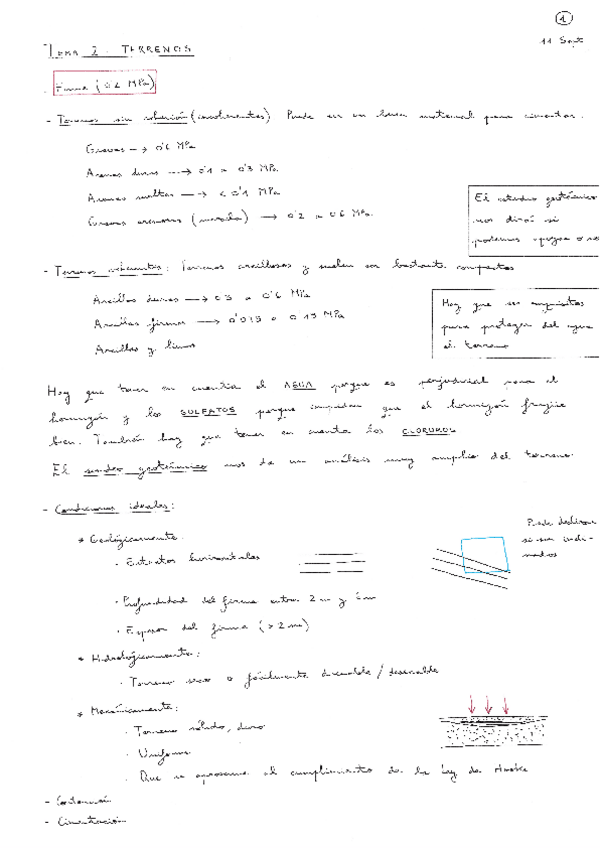 1
11 Sept
Tema 2. TERRENOS
Firme (0'2 MPa)
- Terrenos sin cohesión (incoherentes) Puede ser un buen material para cimentar.
Gravas → 0'6 MPa
Arenas duras → 0'1 a 0'3 MPa
Arenas sueltas → < 0'1 MPa
Gravas arenosas (mezcla) → 0'2 a 0'6 MPa.
El estudio geotécnico
nos dirá si
podemos apoyar o no
- Terrenos coherentes: Terrenos arcillosos y suelen ser bastante compactos
Arcillas duras → 0'3 a 0'6 MPa
Arcillas firmes → a 0'15 MPa
Arcillas y limos
Hay que ser
para proteger del agua
el terreno
Hay que tener en cuenta el AGUA porque es perjudicial para el
hormigón y los SULFATOS porque impiden que el hormigón fragüe
bien. También hay que tener en cuenta los CLORUROS
El sondeo geotécnico nos da un análisis muy amplio del terreno.
- Condiciones ideales:
* Geológicamente.
· Estratos horizontales
Puede deslizar
si son incli-
nados
· Profundidad del firme entre 2 m y 6 m
· Espesor del firme (>2m)
* Hidrológicamente:
· Terreno seco o fácilmente drenable / desecable
* Mecánicamente:
· Terreno sólido, duro
· Uniforme
· Que se aproxime al cumplimiento de la Ley de Hooke
- Contención
- Cimentación